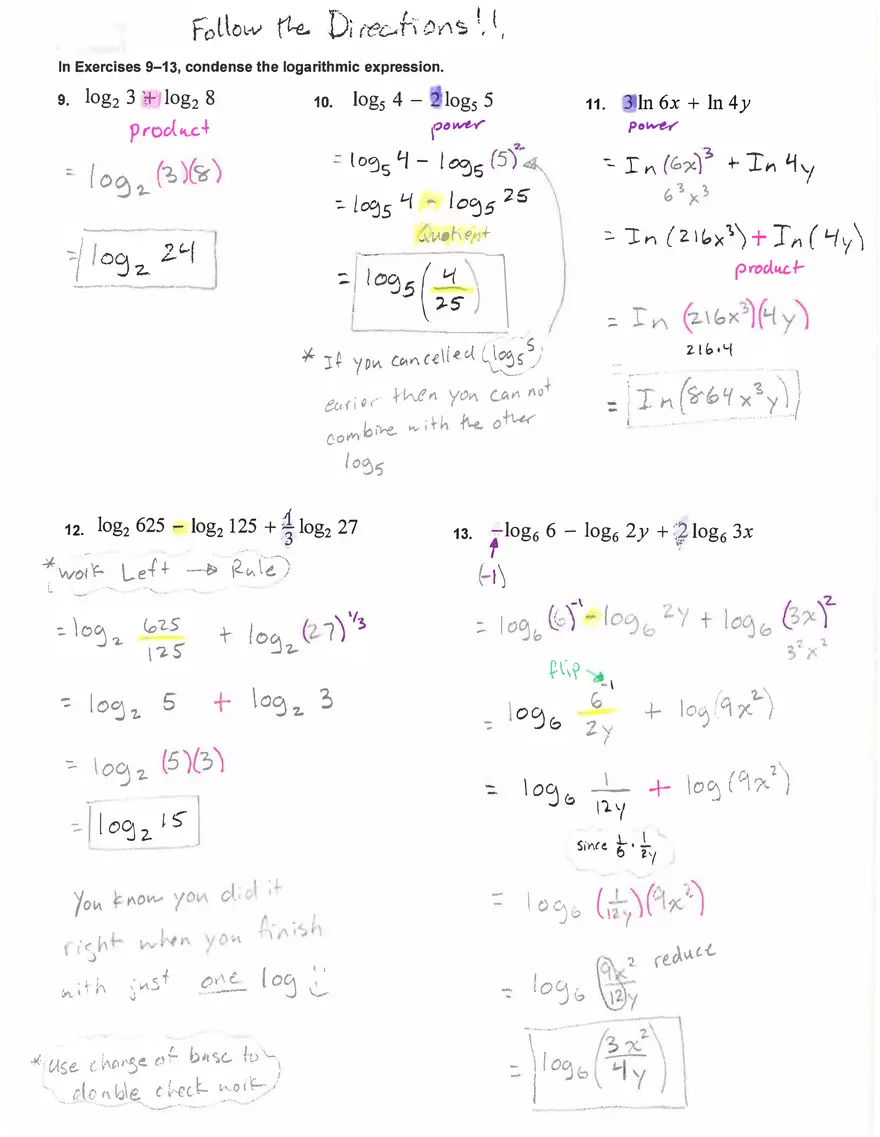 Follow the Directions!!!
In Exercises 9–13, condense the logarithmic expression.
9. log₂ 3 + log₂ 8
product
= log₂ (3)(8)
= log₂ 24
10. log₅ 4 − 2 log₅ 5
power
= log₅ 4 − log₅ (5)²
= log₅ 4 − log₅ 25
Quotient
= log₅ (4/25)
* If you cancelled (log₅ 5)
earier then you can not
combine with the other
log₅
11. 3 ln 6x + ln 4y
power
= In (6x)³ + In 4y
6³x³
= In (216x³) + In (4y)
product
= In (216x³)(4y)
216·4
= In (864x³y)
12. log₂ 625 − log₂ 125 + 1/3 log₂ 27
* work Left → Rule
= log₂ 625/125 + log₂ (27)^1/3
= log₂ 5 + log₂ 3
= log₂ (5)(3)
= log₂ 15
You know you did it
right when you finish
with just one log
* Use change of base to
double check work
13. −log₆ 6 − log₆ 2y + 2 log₆ 3x
(-1)
= log₆ (6)⁻¹ − log₆ 2y + log₆ (3x)²
3²x²
flip
= log₆ 6⁻¹/2y + log (9x²)
= log₆ 1/12y + log (9x²)
since 1/6 · 1/2y
= log₆ (1/12y)(9x²)
= log₆ 9x²/12y reduce
= log₆ (3x²/4y)